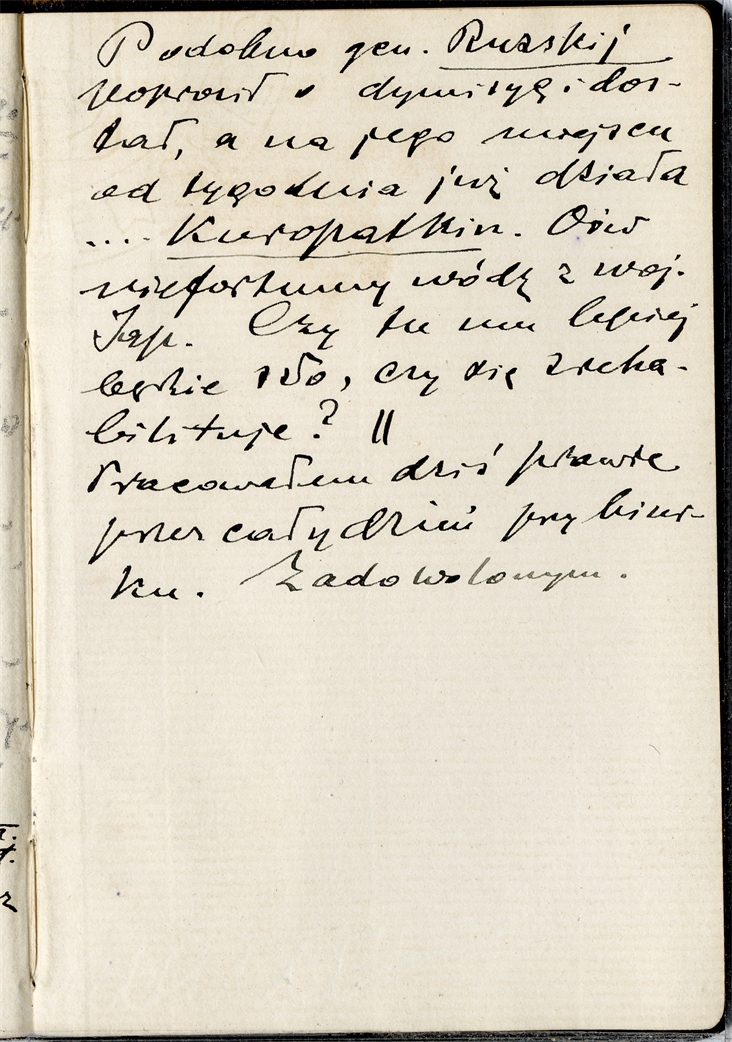 Podobno gen. Ruzskij
poprosił o dymisyę i dos-
tał, a na jego miejscu
od tygodnia już działa
.... Kuropatkin. Ów
niefortunny wódz z woj.
Jap. Czy tu mu lepiej
będzie szło, czy się zreha-
bilituje? ||
Pracowałem dziś prawie
przez cały dzień przy biur-
ku. Zadowolonym.